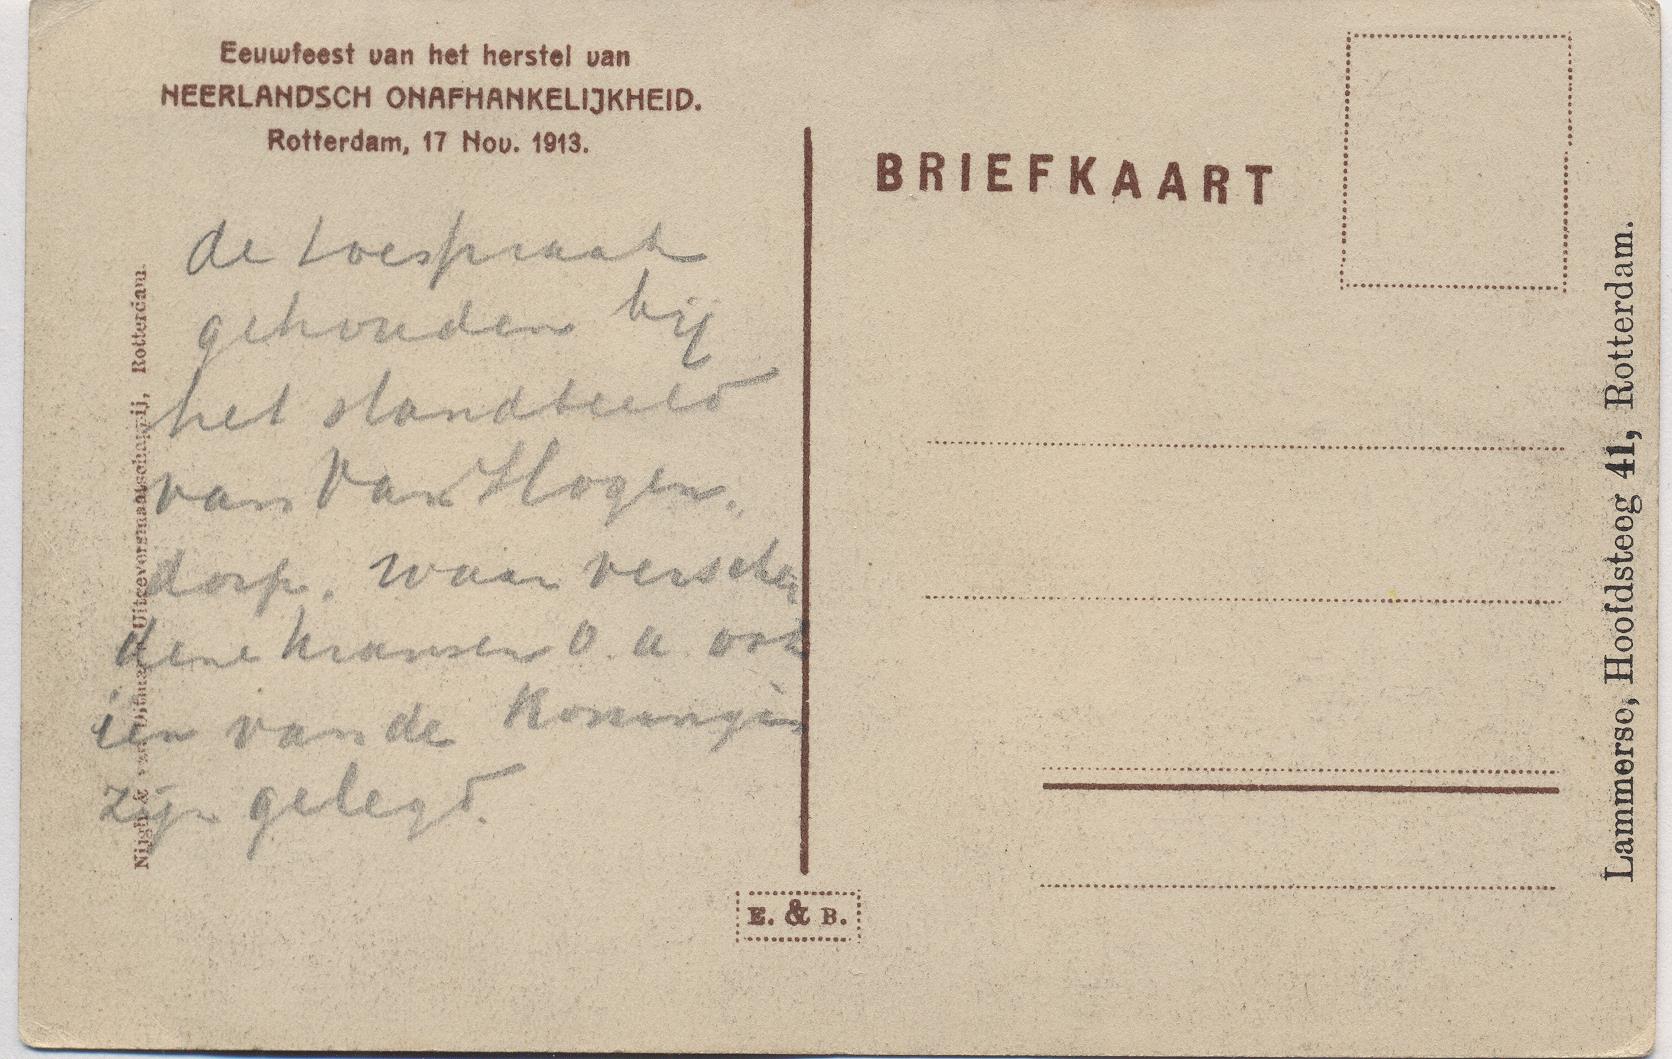 Eeuwfeest van het herstel van
NEERLANDSCH ONAFHANKELIJKHEID.
Rotterdam, 17 Nov. 1913.
de toespraak
gehouden bij
het standbeeld
van Van Hogen.
dorp. waar verschei
dene kransen o.a. ook
één van de Koningin
zijn gelegd.
Nijgh & van Ditmar's Uitgeversmaatschappij, Rotterdam.
BRIEFKAART
E. & B.
Lammerse, Hoofdsteeg 41, Rotterdam.